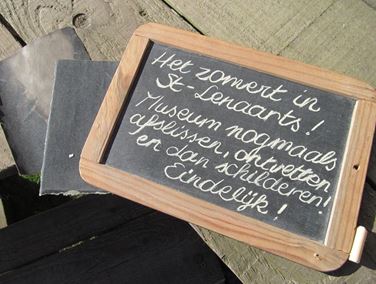 Het zomert in
St-Lenaarts!
Museum nogmaals
afslissen, ontvetten
en dan schilderen!
Eindelijk!